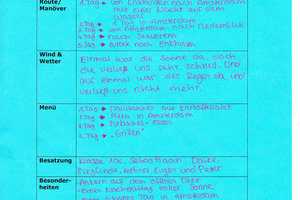 Route/
Manöver
1. Tag → von Enkhuizen nach Amsterdam
mit einer Nacht auf dem
Wasser
2. Tag → 1 Tag in Amsterdam
3. Tag → von Amsterdam nach Medemblik
4. Tag → nach Stavoren
5. Tag → zurück nach Enkhuizen
Wind &
Wetter
Einmal war die Sonne da, doch
die verließ uns sehr schnell. Und
auf einmal war der Regen da und
verließ uns nicht mehr.
Menü
1. Tag → Maultaschen mit Kartoffelsalat
2. Tag → Pizza in Amsterdam
3. Tag →
4. Tag → „Grillen"
Besatzung
Klasse 10c, Sebastiaan,
Sieglinde, Arberi, Eugen und Peter
Besonder-
heiten
- Ankern auf dem offenen Meer
- einen Nachmittag voller Sonne
- einen schönen Tag in Amsterdam